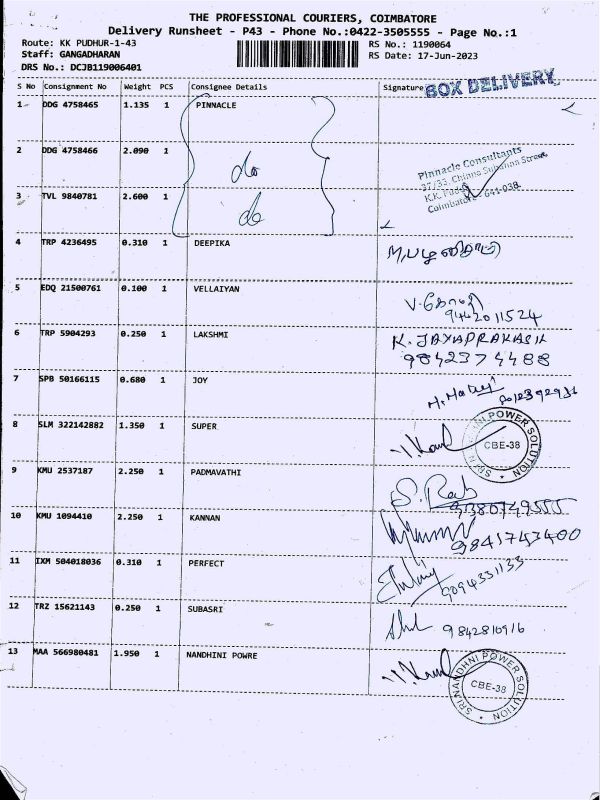 THE PROFESSIONAL COURIERS, COIMBATORE
Delivery Runsheet - P43 - Phone No.:0422-3505555 - Page No.:1
Route: KK PUDHUR-1-43 RS No.: 1190064
Staff: GANGADHARAN RS Date: 17-Jun-2023
DRS No.: DCJB119006401
BOX DELIVERY
S No Consignment No Weight PCS Consignee Details Signature
1 DDG 4758465 1.135 1 PINNACLE
2 DDG 4758466 2.090 1 do
Pinnacle Consultants
37/33, Chinna Subanna Street
K.K. Pudur
Coimbatore - 641 038
3 TVL 9840781 2.600 1 do
4 TRP 4236495 0.310 1 DEEPIKA
5 EDQ 21500761 0.100 1 VELLAIYAN
9442011524
6 TRP 5904293 0.250 1 LAKSHMI K. JAYAPRAKASH
9842374488
7 SPB 50166115 0.680 1 JOY
8 SLM 322142882 1.350 1 SUPER
POWER SOLUTION
CBE-38
9 KMU 2537187 2.250 1 PADMAVATHI
10 KMU 1094410 2.250 1 KANNAN
9841743400
11 IXM 504018036 0.310 1 PERFECT
9094331133
12 TRZ 15621143 0.250 1 SUBASRI
9842810916
13 MAA 566980481 1.950 1 NANDHINI POWRE
SRI NANDHNI POWER SOLUTION
CBE-38